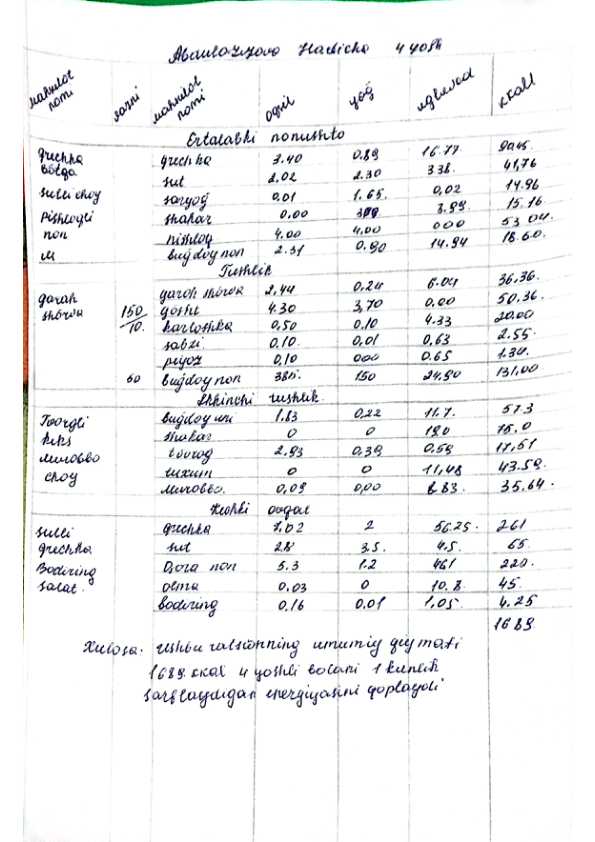 Abdulazizova Habicha 4 yosh
mahsulot nomi vazni mahsulot nomi oqsil yog' uglevod kkall
Ertalabki nonushta
grechka grechka 3.40 0.89 16.77
botqa sut 2.02 2.30 3.38. 41,76
sutli choy saryog' 0,01 1.65. 0,02 14.96
pishloqli shakar 0.00 3.99 15.16
non pishloq 4.00 4.00 000 53.04.
bug'doy non 2.31 0.90 14.94 18.60.
Tushlik
qaroh shorva 2,44 0,24 6.04 36,36.
shorva 150/10. go'sht 4.30 3,70 0,00 50,36.
kartoshka 0,50 0.10 4.33 20.00
sabzi 0,10. 0,01 0,63 2.55.
piyoz 0,10 000 0.65 1.34.
60 bug'doy non 385. 150 24,90 131,00
Ikkinchi tushlik.
Tvorgli bug'doy un 1.83 0,22 11.7. 573
keks shakar 0 0 190 75.0
murabbo tvorog 2.93 0,39 0,59 17,51
choy tuxum 0 0 11,48 43.59.
murabbo. 0,09 0,00 8.83. 35,64.
Kechki ovqat
sutli grechka 7,02 2 56.25. 261
grechka sut 2.8 3.5. 4.5. 65
Bodiring Qora non 5.3 1.2 461 220.
salat. olma 0.03 0 10.8. 45.
bodiring 0,16 0.01 1,05. 4.25
1689
Xulosa. ushbu ratsionning umumiy qiymati
1689 kkal 4 yoshli bolani 1 kunlik
sarflaydigan energiyasini qoplaydi